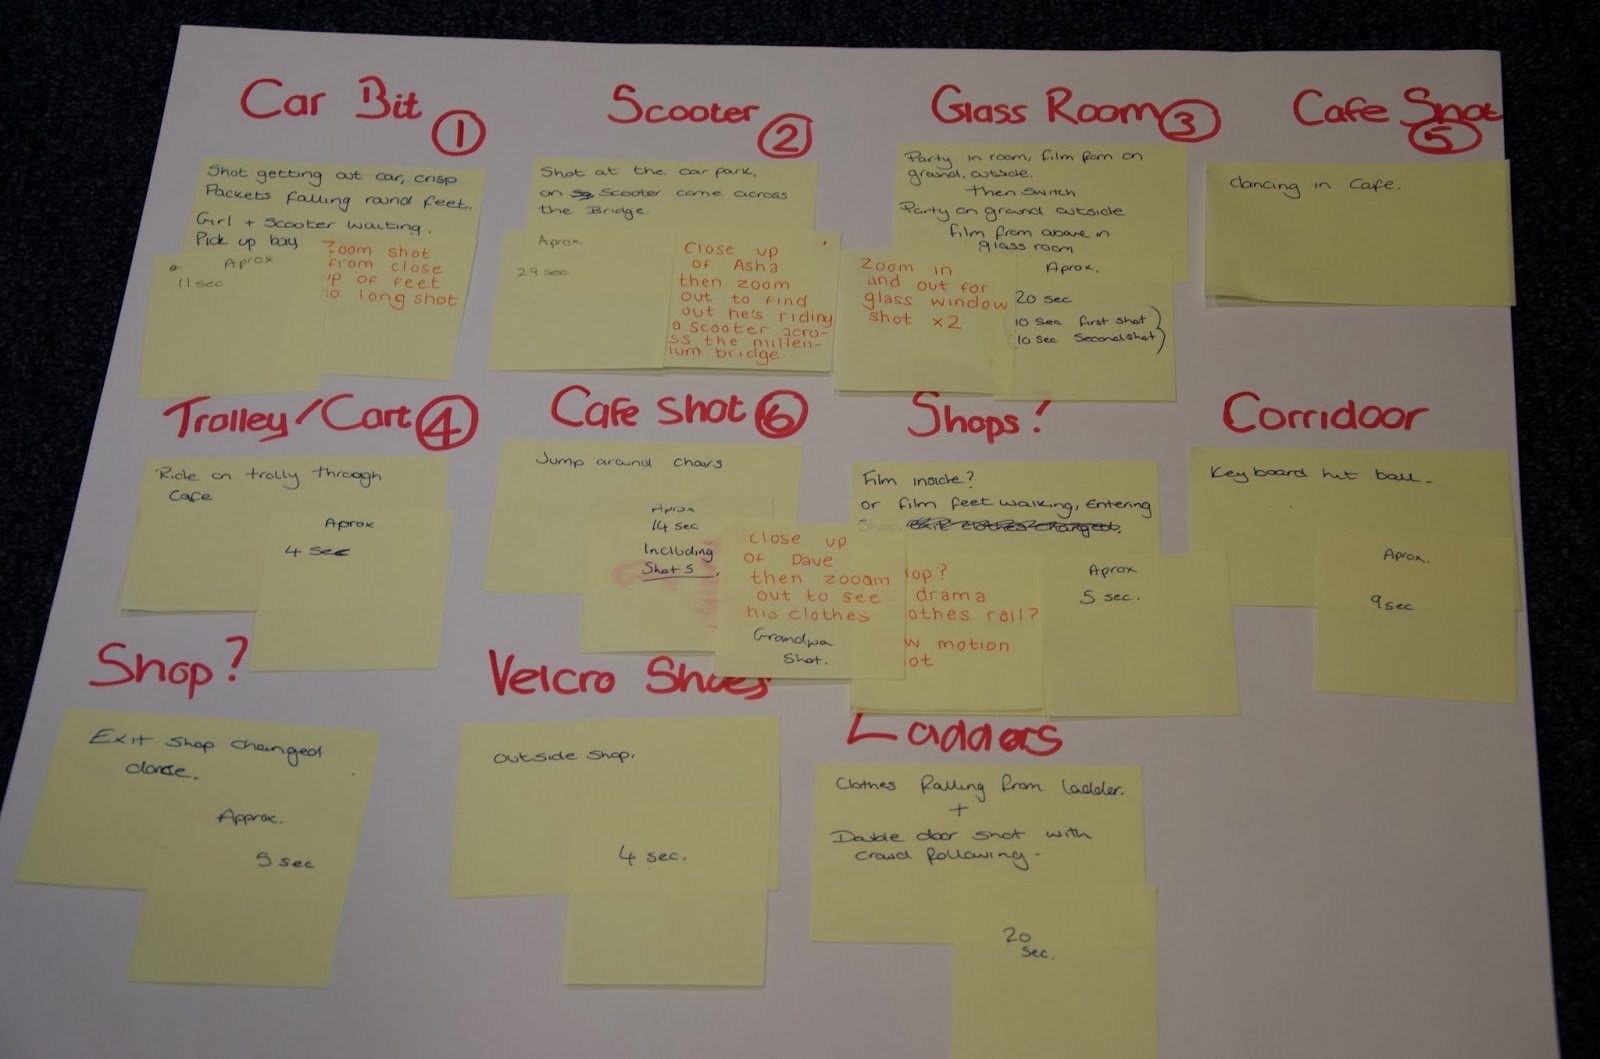 Car Bit ①
Shot getting out car, crisp
Packets falling round feet.
Girl + Scooter waiting.
Pick up bay
Aprox
11 sec
Zoom shot
from close
up of feet
to long shot
Scooter ②
Shot at the car park,
on scooter come across
the Bridge.
Aprox
29 sec
Close up
of Asha
then zoom
out to find
out he's riding
a scooter acro-
ss the millen-
ium bridge.
Glass Room ③
Party in room, film from on
ground, outside.
then switch
Party on ground outside
film from above in
glass room
Zoom in
and out for
glass window
shot x2
Aprox.
20 sec
(10 sec first shot)
(10 sec second shot)
Cafe Shot
⑤
dancing in Cafe.
Trolley/Cart ④
Ride on trolly through
Cafe
Aprox
4 sec
Cafe Shot ⑥
Jump around chairs
Aprox
14 sec
Including
Shot 5.
Close up
of Dave
then zooam
out to see
his clothes
Grandpa
Shot.
Shops!
Film inside?
or film feet walking, entering
Shop,
op?
drama
othes rail?
w motion
ot
Aprox
5 sec.
Corridoor
Keyboard hit ball.
Aprox.
9 sec
Shop?
Exit shop changed
Approx.
5 sec
Velcro Shoes
outside shop.
4 sec.
Ladders
Clothes falling from ladder.
+
Double door shot with
crowd following.
20
sec.